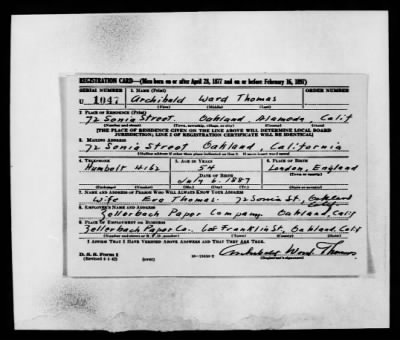 REGISTRATION CARD—(Men born on or after April 28, 1877 and on or before February 16, 1897)
SERIAL NUMBER 1. NAME (Print) ORDER NUMBER
U 1047 Archibald Ward Thomas
(First) (Middle) (Last)
2. PLACE OF RESIDENCE (Print)
72 Sonia Street Oakland, Alameda, Calif
(Number and street) (Town, township, village, or city) (County) (State)
[THE PLACE OF RESIDENCE GIVEN ON THE LINE ABOVE WILL DETERMINE LOCAL BOARD
JURISDICTION; LINE 2 OF REGISTRATION CERTIFICATE WILL BE IDENTICAL]
3. MAILING ADDRESS
72 Sonia Street Oakland, California
[Mailing address if other than place indicated on line 2. If same insert word same]
4. TELEPHONE 5. AGE IN YEARS 6. PLACE OF BIRTH
Humbolt 4162 54 London, England
DATE OF BIRTH (Town or county)
July 6. 1887
(Exchange) (Number) (Mo.) (Day) (Yr.) (State or country)
7. NAME AND ADDRESS OF PERSON WHO WILL ALWAYS KNOW YOUR ADDRESS
Wife Eva Thomas. 72 Sonia St, Oakland
8. EMPLOYER'S NAME AND ADDRESS
Zellerbach Paper Company Oakland, Calif
9. PLACE OF EMPLOYMENT OR BUSINESS
Zellerbach Paper Co. Franklin St, Oakland, Calif
(Number and street or R. F. D. number) (Town) (County) (State)
I AFFIRM THAT I HAVE VERIFIED ABOVE ANSWERS AND THAT THEY ARE TRUE.
D. S. S. Form 1
(Revised 4-1-42) (over) Archibald Ward Thomas
(Registrant's signature)